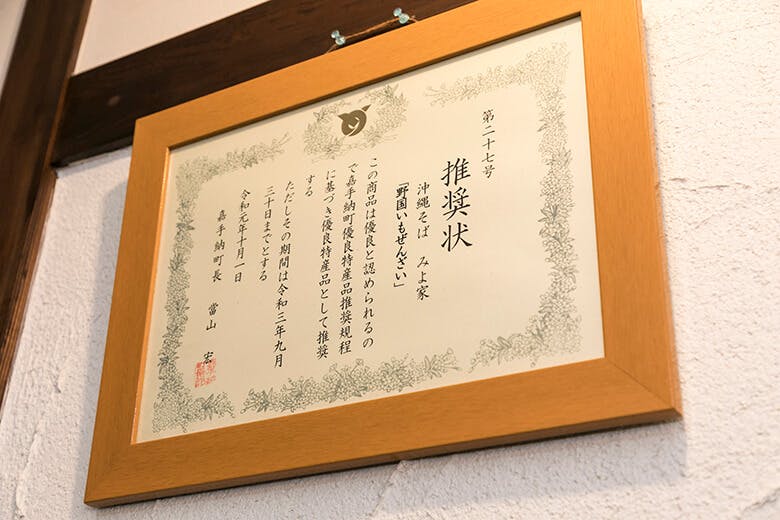 第二十七号
推奨状
沖縄そば　みよ家
「野国いもぜんざい」
この商品は優良と認められるの
で嘉手納町優良特産品推奨規程
に基づき優良特産品として推奨
する
ただしその期間は令和三年九月
三十日までとする
令和元年十月一日
嘉手納町長　當山　宏